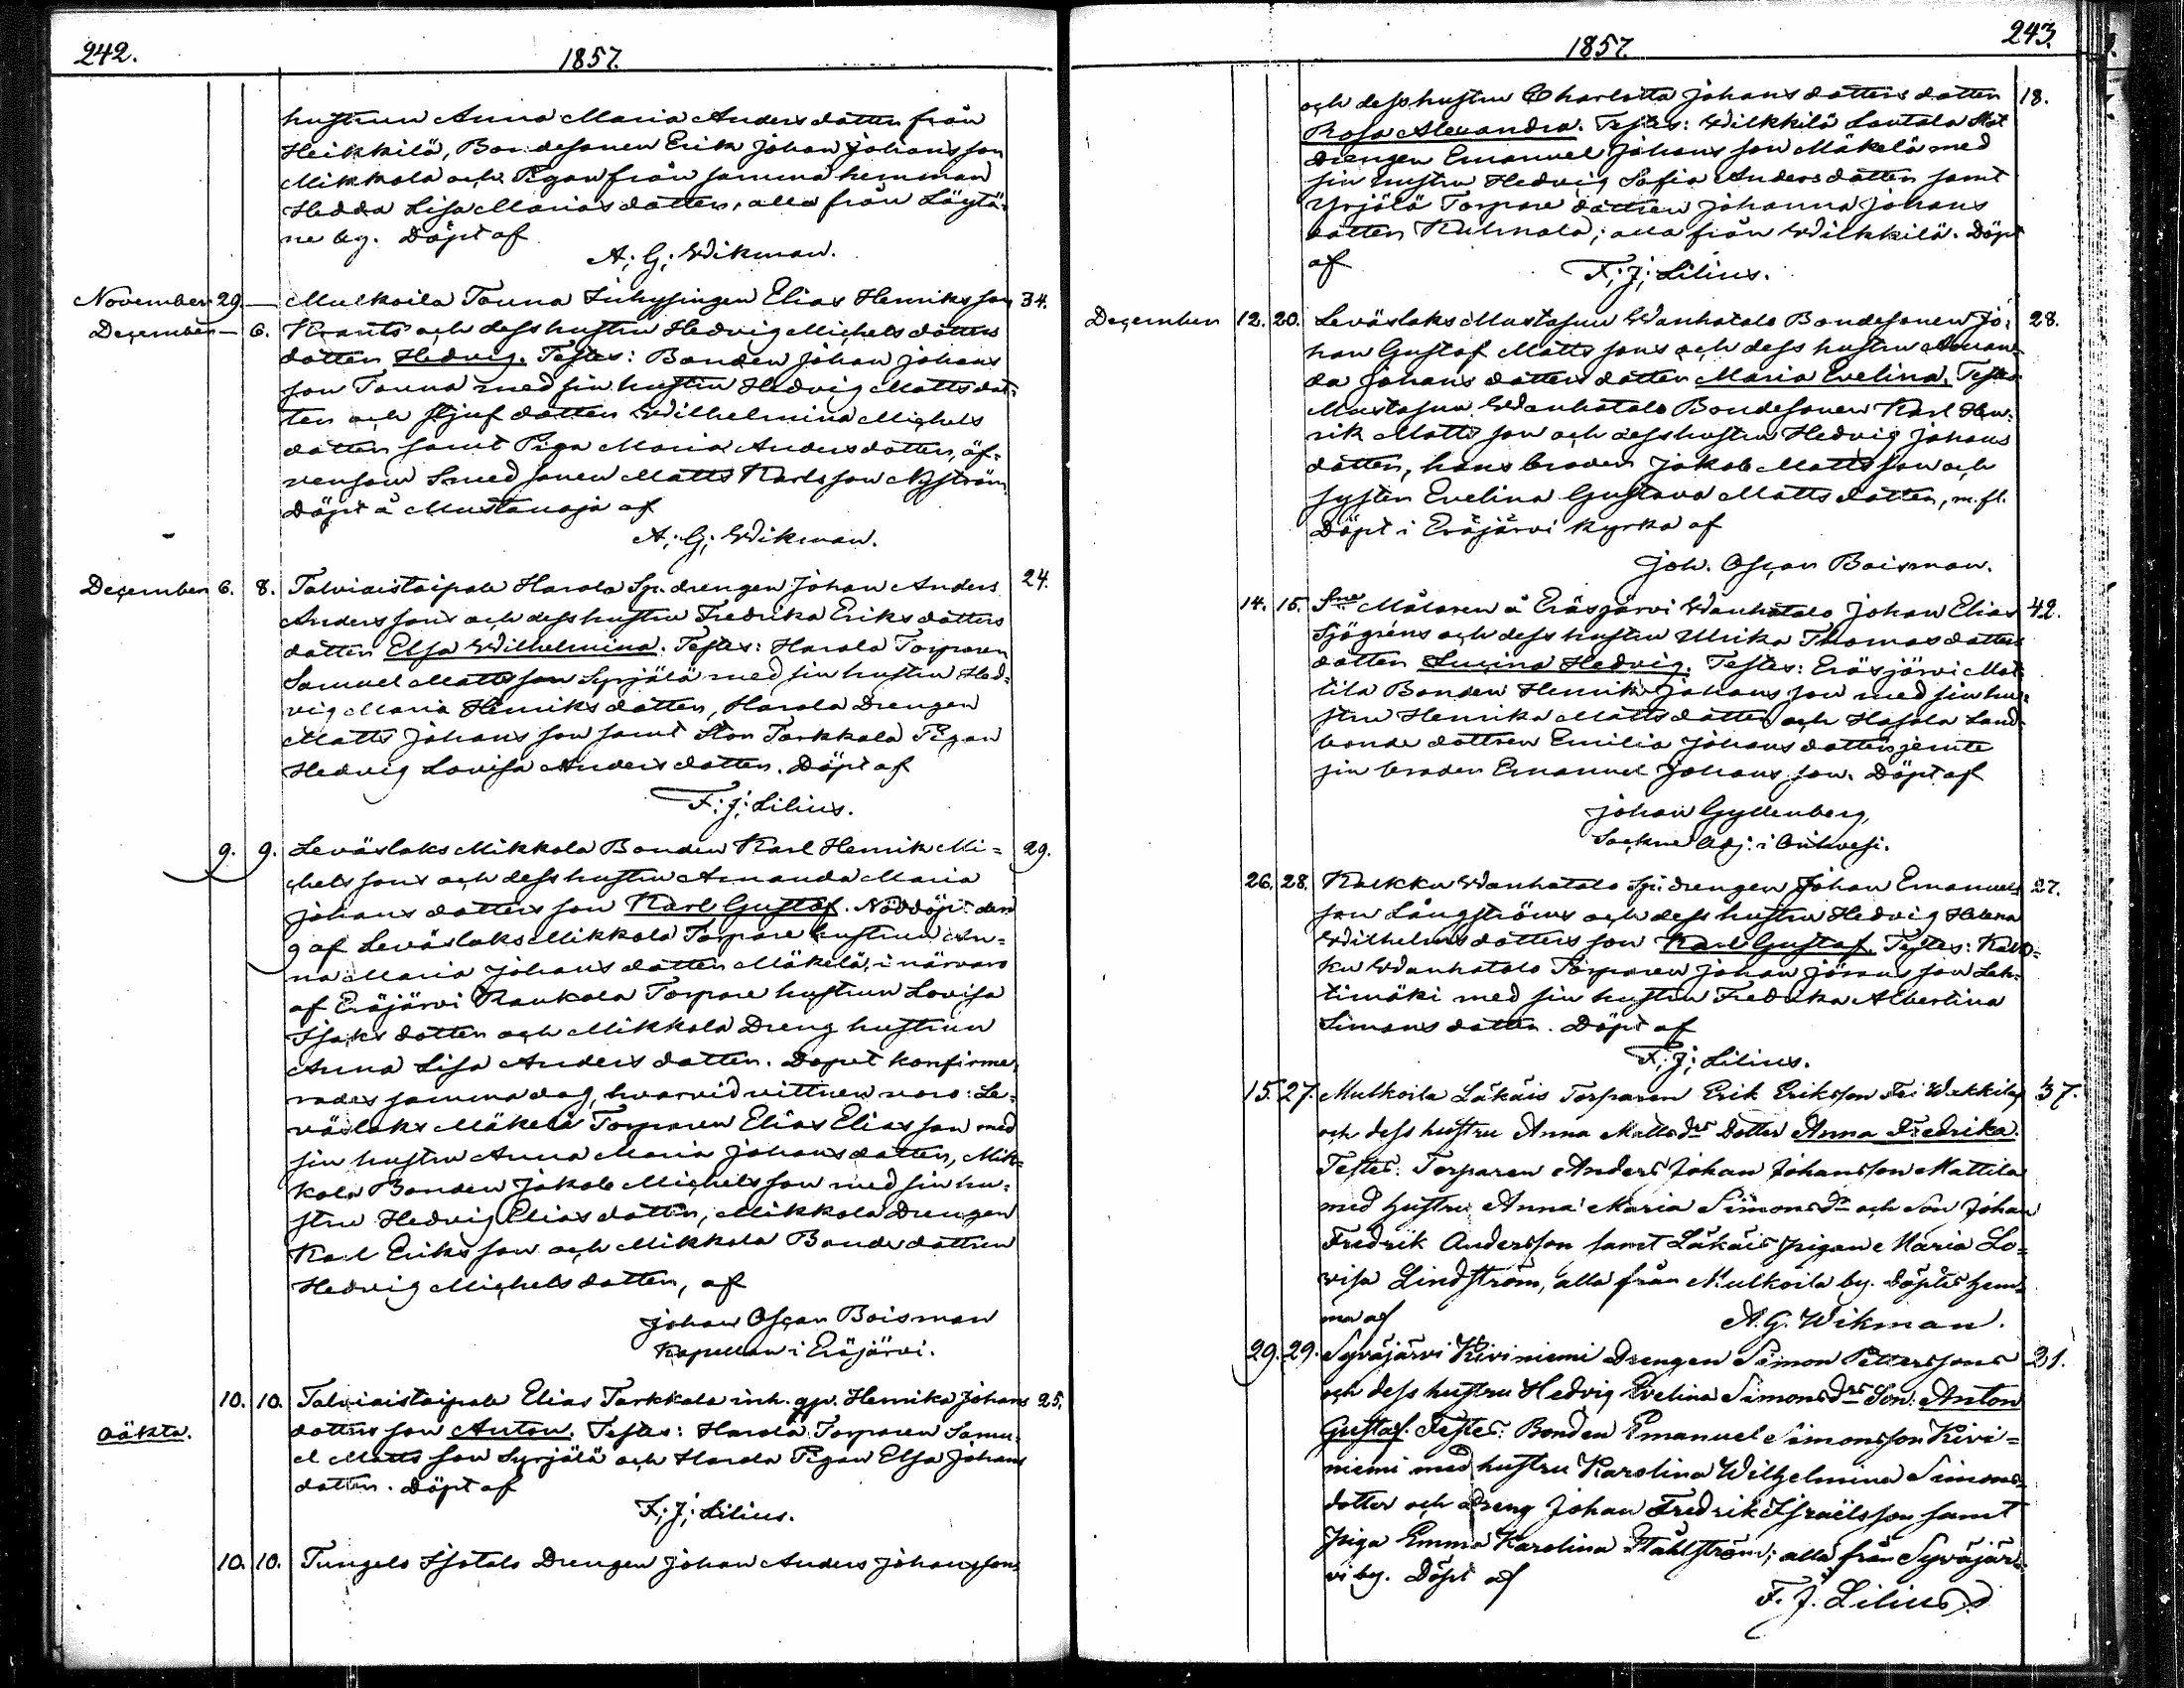 242.
1857.
hustrun Anna Maria Andersdotter från
Heikkilä, Bondesonen Erik Johan Johansson
Mikkola och Pigan från samma hemman
Hedda Lisa Mariasdotter, alla från Löytä=
ne by. Döpt af
A. G. Wikman.
November 29. — Mulkoila Touna Inhysingen Elias Henriksson 34.
December — 6. Krants och dess hustru Hedvig Michelsdotters
dotter Hedvig. Testes: Bonden Johan Johans
son Touna med sin hustru Hedvig Mattsdot=
ter och stjufdotter Wilhelmina Michels
dotter samt Piga Maria Andersdotter, äf=
vensom Smedsonen Matts Karlsson Nyström
Döpt å Mustanoja af
A. G. Wikman.
December 6. 8. Talviaistaipale Harola Sp. drengen Johan Anders 24.
Anderssons och dess hustru Fredrika Eriksdotters
dotter Elsa Wilhelmina. Testes: Harola Torparen
Samuel Mattsson Syrjälä med sin hustru Hed=
vig Maria Henriksdotter, Harola Drengen
Matts Johansson samt Stor Tarkkala Pigan
Hedvig Lovisa Andersdotter. Döpt af
F. J. Lilius.
9. 9. Leväslaks Mikkola Bonden Karl Henrik Mi= 29.
chelssons och dess hustru Amanda Maria
Johansdotters son Karl Gustaf. Nöddöpt den
9 af Leväslaks Mikkola Torpare hustrun An=
na Maria Johansdotter Mäkelä, i närvaro
af Eräjärvi Raukola Torpare hustrun Lovisa
Isaksdotter och Mikkola Dreng hustrun
Anna Lisa Andersdotter. Dopet konfirme=
rades samma dag, hvarvid vittnen voro: Le=
väslaks Mäkelä Torparen Elias Eliasson med
sin hustru Anna Maria Johansdotter, Mik=
kola Bonden Jakob Michelsson med sin hu=
stru Hedvig Eliasdotter, Mikkola Drengen
Karl Eriksson och Mikkola Bonde dottren
Hedvig Michelsdotter, af
Johan Oscar Boisman
Kapellan i Eräjärvi.
10. 10. Talviaistaipale Elias Tarkkala inh. qp. Henrika Johans 25.
oäkta. dotters son Anton. Testes: Harola Torparen Samu=
el Mattsson Syrjälä och Harola Pigan Elsa Johans
dotter. Döpt af
F. J. Lilius.
10. 10. Tungelo Isotalo Drengen Johan Anders Johanssons
243.
1857.
och dess hustru Charlotta Johansdotters dotter 18.
Rosa Alexandra. Testes: Wilkkilä
drengen Emanuel Johansson Mäkelä med
sin hustru Hedvig Sofia Andersdotter samt
Yrjölä Torpare dottren Johanna Johans
dotter Kulmala; alla från Wilkkilä. Döpt
af
F. J. Lilius.
December 12. 20. Leväslaks Mustasuu Wanhatalo Bondesonen Jo= 28.
han Gustaf Mattssons och dess hustru Aman=
da Johansdotters dotter Maria Evelina. Testes
Mustasuu Wanhatalo Bondesonen Karl Hen=
rik Mattsson och dess hustru Hedvig Johans
dotter, hans broder Jakob Mattsson och
syster Evelina Gustava Mattsdotter, m. fl.
Döpt i Eräjärvi kyrka af
Joh. Oscar Boisman.
14. 15. Målaren å Eräsjärvi Wanhatalo Johan Elias 42.
Sjögréns och dess hustru Ulrika Thomasdotters
dotter Lucina Hedvig. Testes: Eräsjärvi Mat
tila Bonden Henrik Johansson med sin hu=
stru Henrika Mattsdotter och Hasola Land=
bonde dottren Emilia Johansdotter jemte
sin broder Emanuel Johansson. Döpt af
Johan Gyllenberg,
Sockne Adj. i Orihvesi.
26. 28. Kalkku Wanhatalo Sp. drengen Johan Emanuels 27.
son Långströms och dess hustru Hedvig Helena
Wilhelmsdotters son Karl Gustaf. Testes: Kalk=
ku Wanhatalo Torparen Johan Göransson Leh=
timäki med sin hustru Fredrika Albertina
Simonsdotter. Döpt af
F. J. Lilius.
15. 27. Mulkoila Läkäis Torparen Erik Eriksson 37.
och dess hustru Anna Mattsdrs Dotter Anna Fredrika.
Testes: Torparen Anders Johan Johansson Mattila
med hustru Anna Maria Simonsdr och Son Johan
Fredrik Andersson samt Läkäis pigan Maria Lo=
visa Lindström, alla från Mulkoila by. Döptes hem=
ma af
A. G. Wikman.
29. 29. Syväjärvi Kiviniemi Drengen Simon Petterssons 31.
och dess hustru Hedvig Evelina Simonsdrs Son: Anton
Gustaf. Testes: Bonden Emanuel Simonsson Kivi=
niemi med hustru Karolina Wilhelmina Simons
dotter och dreng Johan Fredrik Israëlsson samt
piga Emma Karolina Ståhlström; alla från Syväjär
vi by. Döpt af
F. J. Lilius.